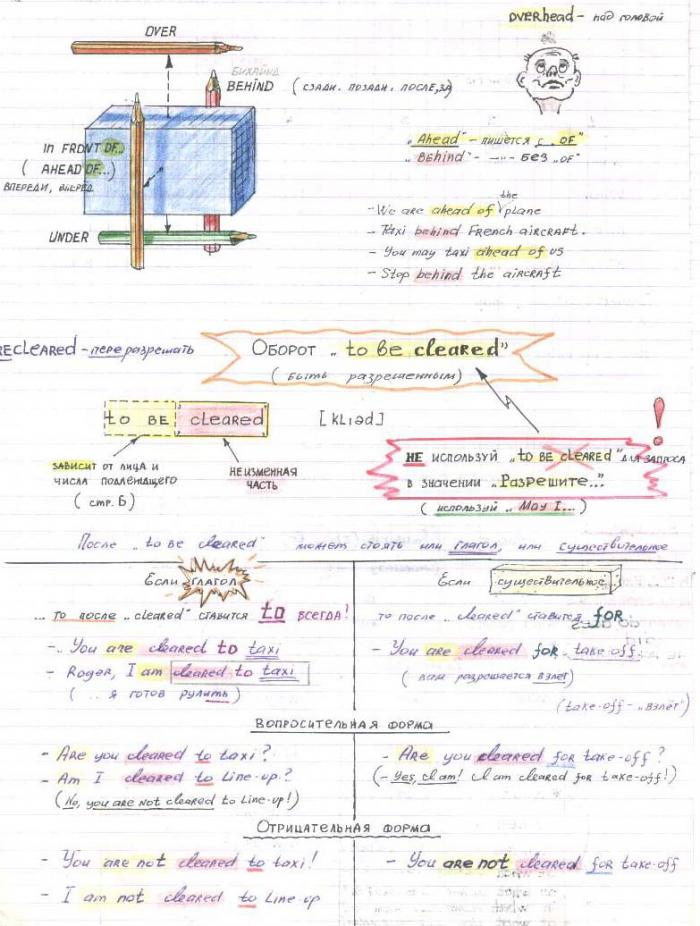 OVER
overhead - над головой
БИХАЙНД
BEHIND ( сзади. позади. после, за)
IN FRONT OF...
( AHEAD OF...)
впереди, вперед
UNDER
„Ahead" - пишется с „OF"
„Behind" - -"- без „OF"
- We are ahead of the plane
- Taxi behind French aircraft.
- You may taxi ahead of us
- Stop behind the aircraft
RECLEARED - переразрешать
Оборот „to be cleared"
( быть разрешенным)
to BE cleared [klıəd]
зависит от лица и
числа подлежащего
( стр. 6)
неизменная
часть
!
НЕ используй „to BE cleared" для запроса
в значении „Разрешите..."
( используй „ May I...)
После „to be cleared" может стоять или глагол, или существительное
Если глагол
... то после „cleared" ставится to всегда!
- You are cleared to taxi
- Roger, I am cleared to taxi
( .. я готов рулить)
Если существительное
то после „cleared" ставится for
- You are cleared for take-off
( вам разрешается взлет)
(take-off - „взлет")
Вопросительная форма
- Are you cleared to taxi?
- Am I cleared to Line-up?
(No, you are not cleared to Line-up!)
- Are you cleared for take-off?
(- Yes, I am! I am cleared for take-off!)
Отрицательная форма
- You are not cleared to taxi!
- I am not cleared to Line-up
- You are not cleared for take-off